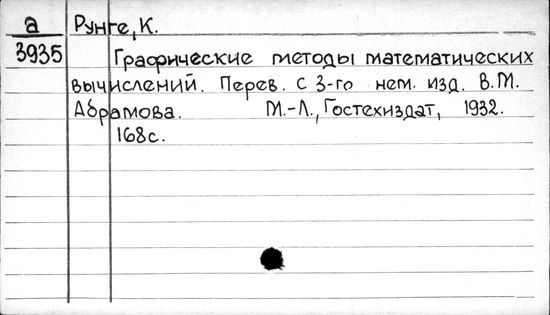 а Рунге, К.
3935 Графические методы математических
вычислений. Перев. с 3-го нем. изд. В.М.
Абрамова. М.-Л., Гостехиздат, 1932.
168с.